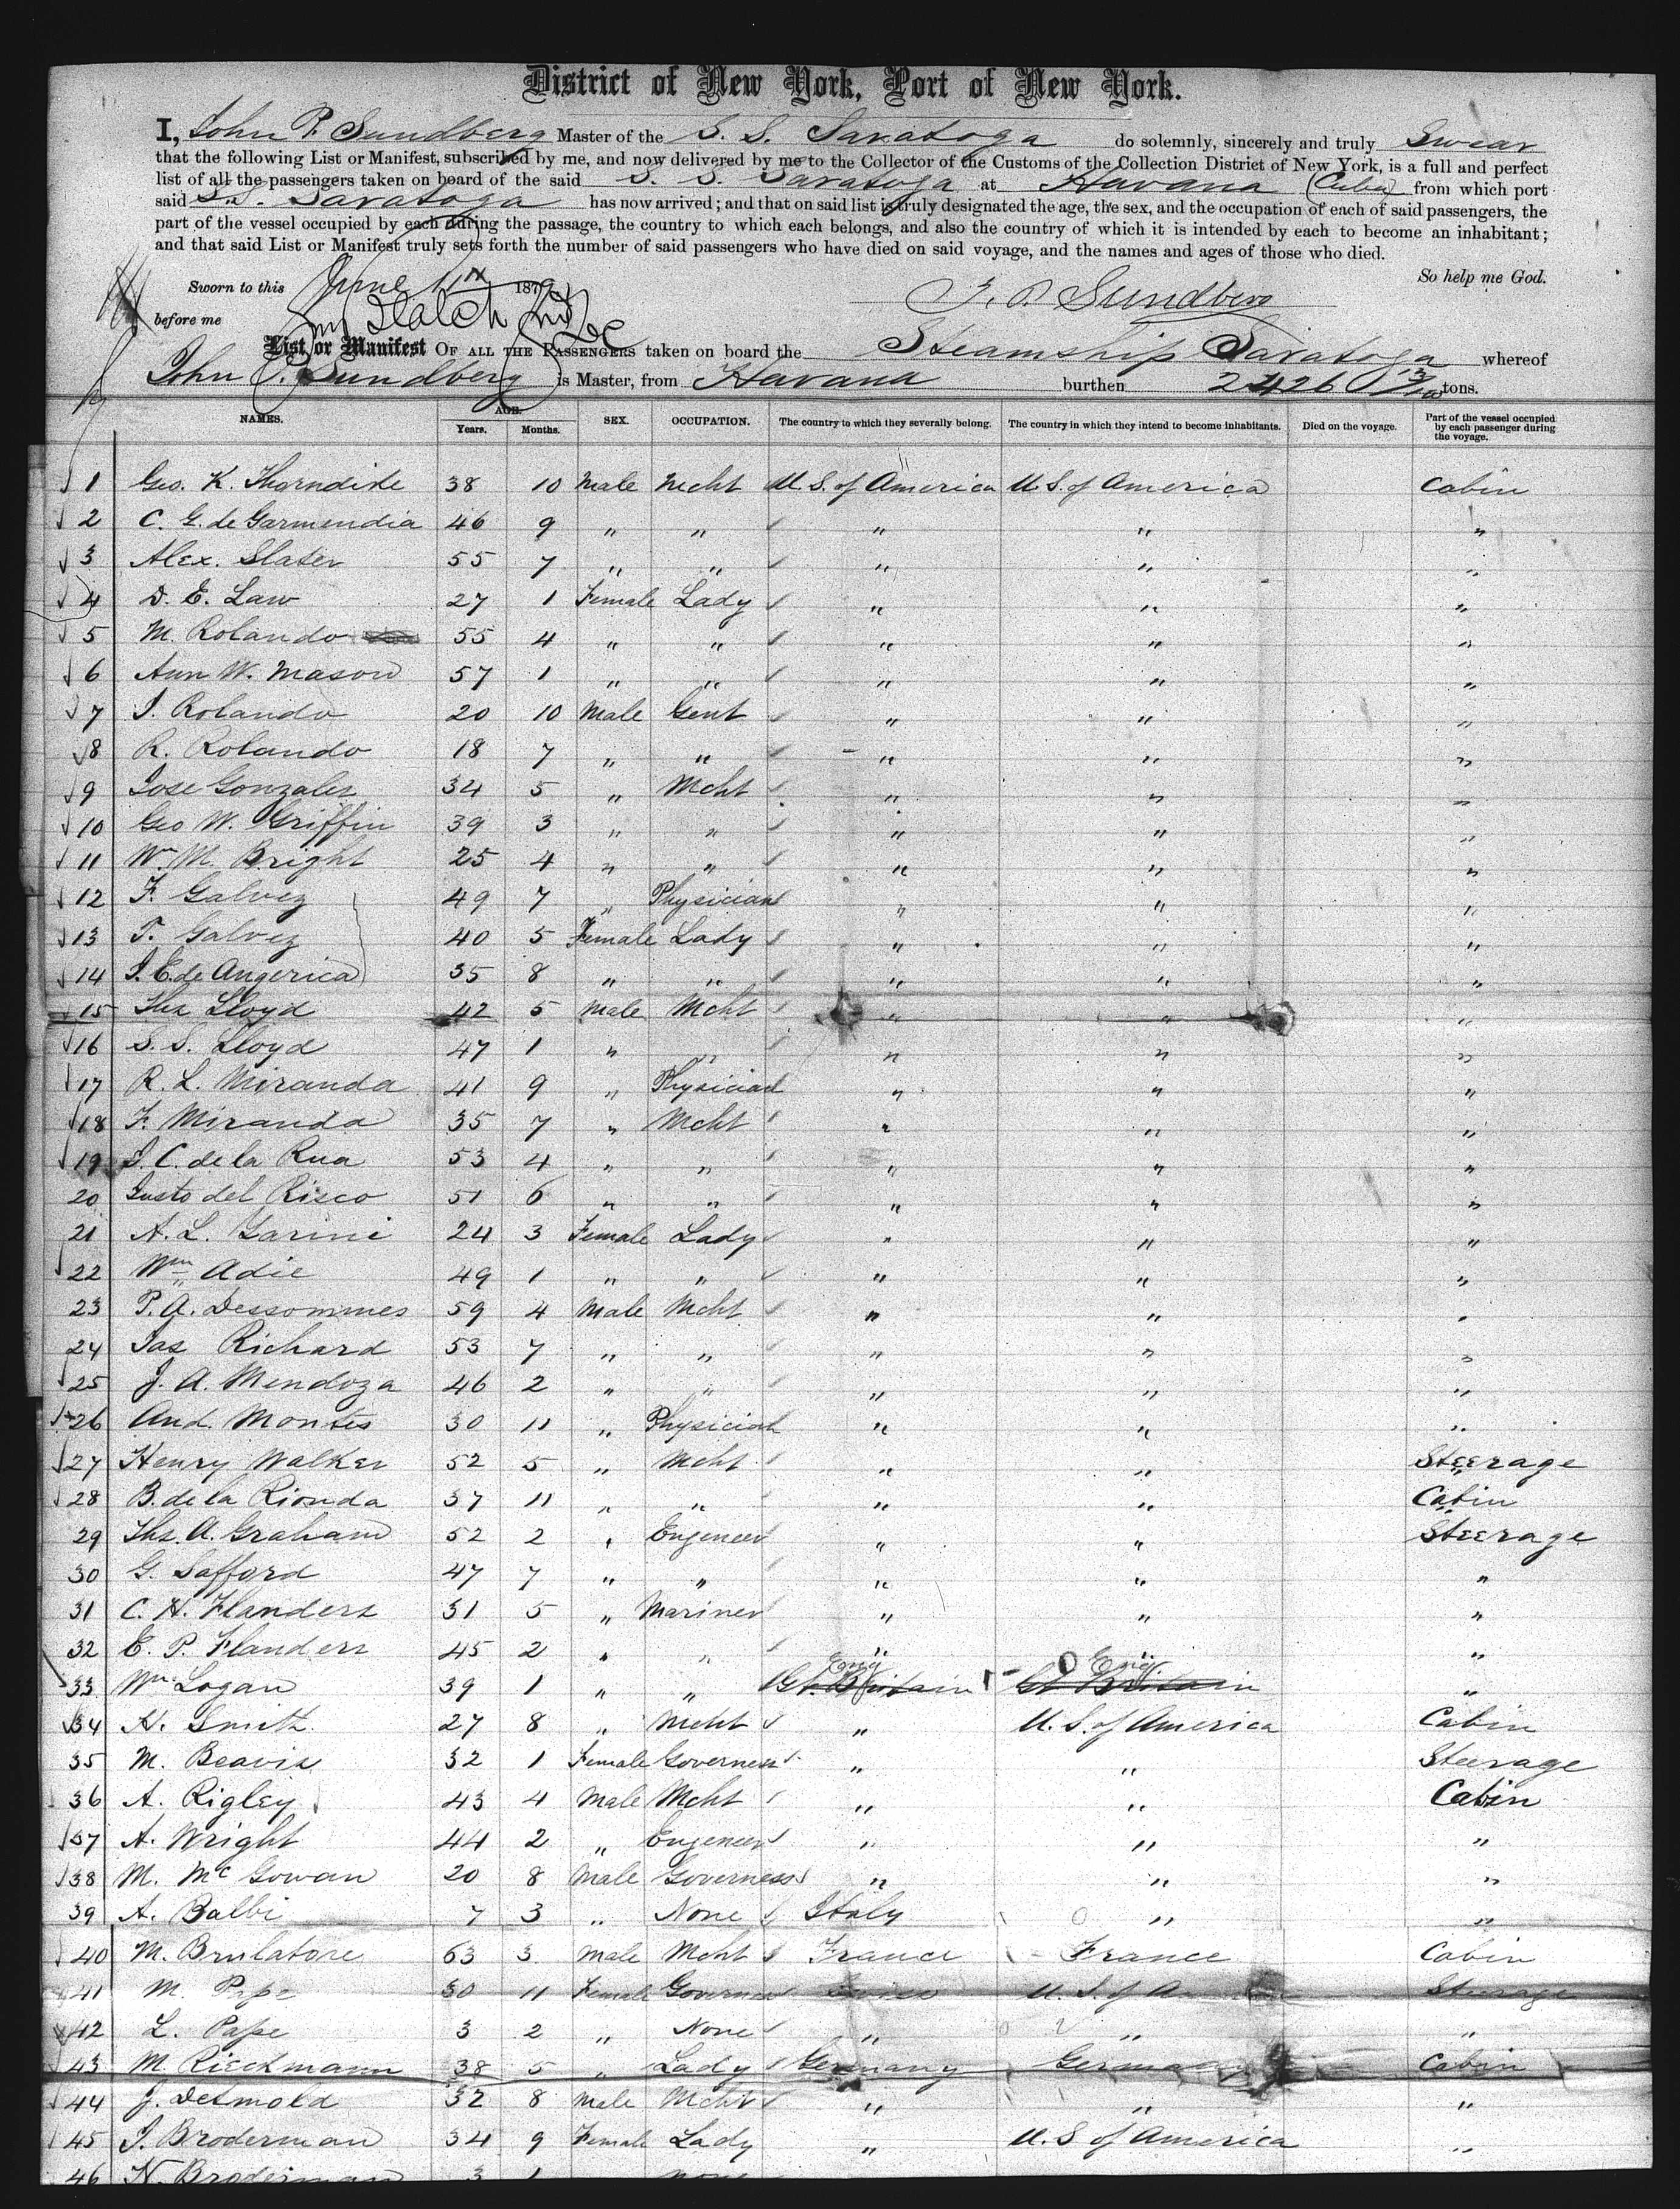 District of New York, Port of New York.
I, John P. Sundberg Master of the S. S. Saratoga do solemnly, sincerely and truly Swear
that the following List or Manifest, subscribed by me, and now delivered by me to the Collector of the Customs of the Collection District of New York, is a full and perfect
list of all the passengers taken on board of the said S. S. Saratoga at Havana (Cuba) from which port
said S.S. Saratoga has now arrived; and that on said list is truly designated the age, the sex, and the occupation of each of said passengers, the
part of the vessel occupied by each during the passage, the country to which each belongs, and also the country of which it is intended by each to become an inhabitant;
and that said List or Manifest truly sets forth the number of said passengers who have died on said voyage, and the names and ages of those who died.
So help me God.
Sworn to this June 11th 1879 J. P. Sundberg
before me
List or Manifest OF ALL THE PASSENGERS taken on board the Steamship Saratoga whereof
John P. Sundberg is Master, from Havana burthen 2426 tons.
NAMES. AGE. Years. Months. SEX. OCCUPATION. The country to which they severally belong. The country in which they intend to become inhabitants. Died on the voyage. Part of the vessel occupied by each passenger during the voyage.
1 Geo. K. Thorndike 38 10 Male Mcht U.S. of America U.S. of America Cabin
2 C. G. de Garmendia 46 9 " " " " "
3 Alex. Slater 55 7 " " " " "
4 D. E. Law 27 1 Female Lady " " "
5 M. Rolando 55 4 " " " " "
6 Ann W. Mason 57 1 " " " " "
7 J. Rolando 20 10 Male Gent " " "
8 R. Rolando 18 7 " " " " "
9 Jose Gonzales 34 5 " Mcht " " "
10 Geo W. Griffin 39 3 " " " " "
11 Wm M. Bright 25 4 " " " " "
12 F. Galvez 49 7 " Physician " " "
13 T. Galvez 40 5 Female Lady " " "
14 J. E. de Angerica 35 8 " " " " "
15 Ths Lloyd 42 5 Male Mcht " " "
16 S. S. Lloyd 47 1 " " " " "
17 R. L. Miranda 41 9 " Physician " " "
18 F. Miranda 35 7 " Mcht " " "
19 J. C. de la Rua 53 4 " " " " "
20 Justo del Risco 51 6 " " " " "
21 A. L. Garini 24 3 Female Lady " " "
22 Wm Adie 49 1 " " " " "
23 P. A. Dessommes 59 4 Male Mcht " " "
24 Jas Richard 53 7 " " " " "
25 J. A. Mendoza 46 2 " " " " "
26 And. Montes 30 11 " Physician " " "
27 Henry Walker 52 5 " Mcht " " Steerage
28 B. de la Rionda 37 11 " " " " Cabin
29 Ths. A. Graham 52 2 " Engeneer " " Steerage
30 G. Safford 47 7 " " " " "
31 C. H. Flanders 31 5 " Mariner " " "
32 E. P. Flanders 45 2 " " " " "
33 Wm Logan 39 1 " " Gt. Britain Eng Gt Britain Eng "
34 H. Smith 27 8 " Mcht " U.S. of America Cabin
35 M. Beavis 32 1 Female Governess " " Steerage
36 A. Rigley 43 4 Male Mcht " " Cabin
37 A. Wright 44 2 " Engeneer " " "
38 M. McGowan 20 8 Male Governess " " "
39 A. Balbi 7 3 " None Italy " "
40 M. Brulatore 63 3 Male Mcht France France Cabin
41 M. Pape 30 11 Female Governess U.S. of A Steerage
42 L. Pape 3 2 " None " " "
43 M. Rieckmann 38 5 " Lady Germany Germany Cabin
44 J. Detmold 32 8 Male Mcht " " "
45 J. Broderman 34 9 Female Lady " U.S of America "
46 N. Broderman 3 1 none